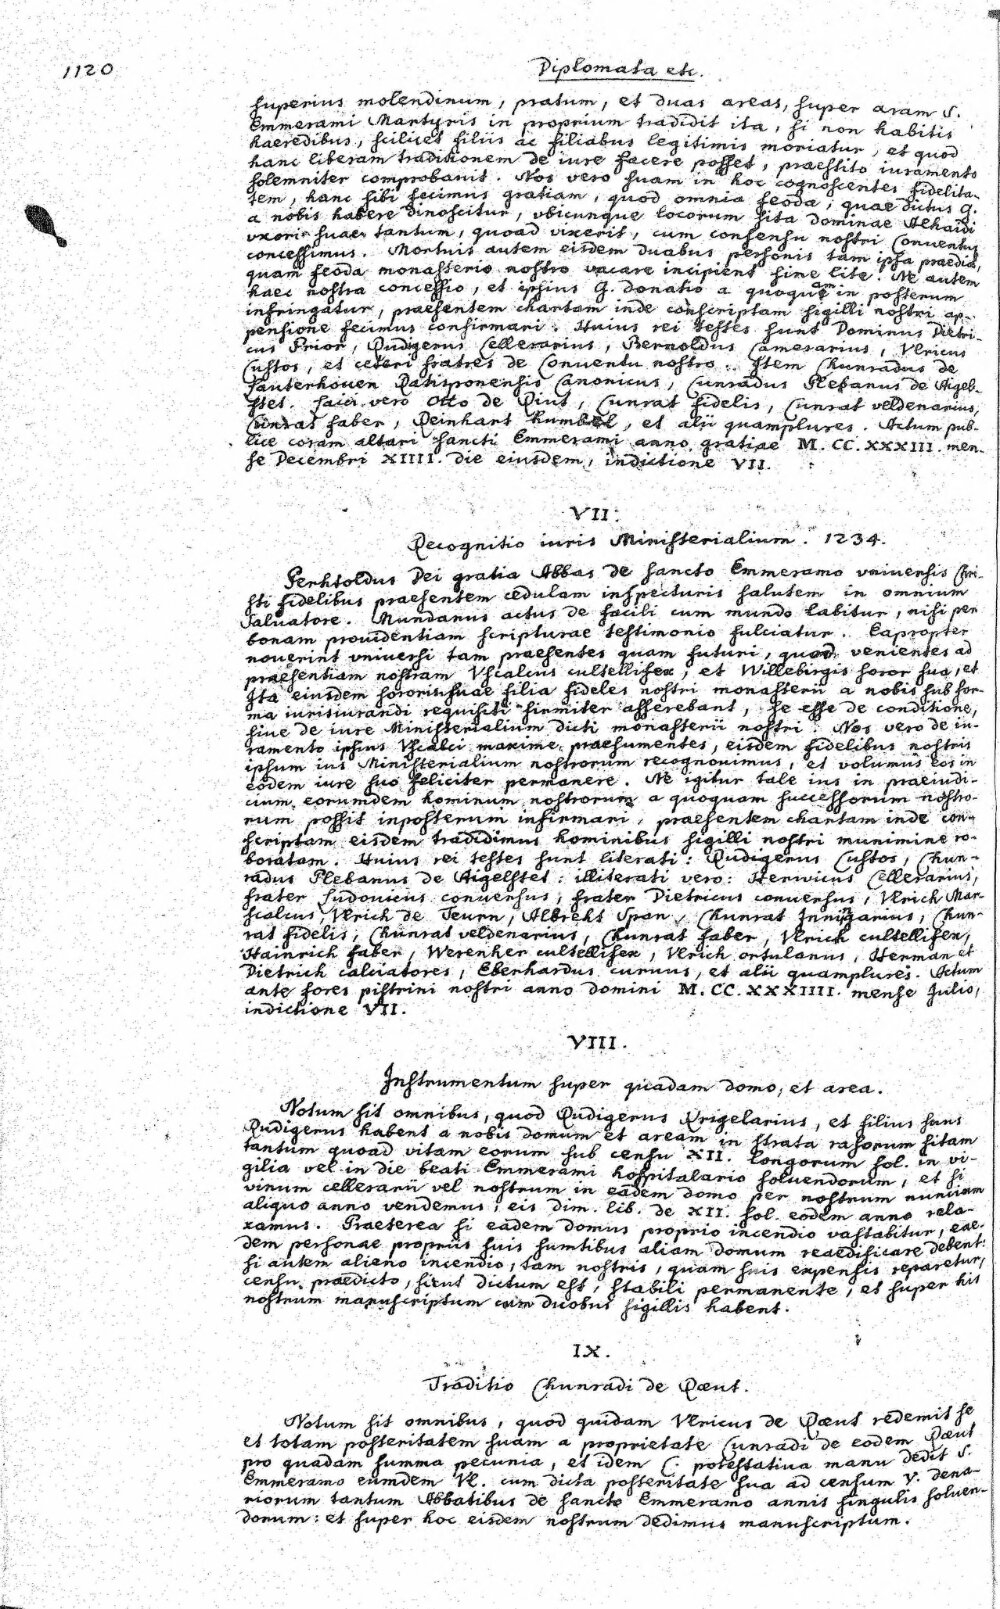 1120
Diplomata etc.
superius molendinum, pratum, et duas areas, super aram S.
Emmerami Martyris in proprium tradidit ita, si non habitis
haeredibus, scilicet filiis ac filiabus legitimis moriatur, et quod
hanc liberam traditionem de iure facere posset, praestito iuramento
solemniter comprobauit. Nos vero suam in hoc cognoscentes fidelita-
tem, hanc sibi fecimus gratiam, quod omnia feoda, quae dictus G.
a nobis habere dinoscitur, vbicunque locorum sita dominae Alhaidi
vxori suae tantum, quoad vixerit, cum consensu nostri Conventus
concessimus. Mortuis autem eisdem duabus personis tam ipsa praedia,
quam feoda monasterio nostro vacare incipient sine lite. Ne autem
haec nostra concessio, et ipsius G. donatio a quoquam in posterum
infringatur, praesentem chartam inde conscriptam sigilli nostri ap-
pensione fecimus confirmari. Huius rei testes sunt Dominus Dietri-
cus Prior, Rudigerus Cellerarius, Bernoldus Camerarius, Vlricus
Custos, et ceteri fratres de Conuentu nostro. Item Chunradus de
Lauterhouen Ratisponensis Canonicus, Cunradus Plebanus de Aigels-
stet. Laici vero Otto de Riut, Cunrat fidelis, Cunrat veldenarius,
Cunrat faber, Reinhart humbel, et alii quamplures. Actum pub-
lice coram altari sancti Emmerami anno gratiae M. CC. XXXIII. men-
se Decembri XIIII. die eiusdem, indictione VII.
VII.
Recognitio iuris Ministerialium. 1234.
Perhtoldus Dei gratia Abbas de sancto Emmeramo vniuersis Chri-
sti fidelibus praesentem cedulam inspecturis salutem in omnium
Saluatore. Mundanus actus de facili cum mundo labitur, nisi per
bonam prouidentiam scripturae testimonio fulciatur. Eapropter
nouerint vniuersi tam praesentes quam futuri, quod venientes ad
praesentiam nostram Vscalcus cultellifex, et Willebirgis soror sua, et
Ita eiusdem sororis suae filia fideles nostri monasterii a nobis sub for-
ma iurisiurandi requisiti firmiter asserebant, se esse de conditione,
siue de iure Ministerialium dicti monasterii nostri. Nos vero de iu-
ramento ipsius Vscalci maxime praesumentes, eisdem fidelibus nostris
ipsum ius Ministerialium nostrorum recognouimus, et volumus eos in
eodem iure suo feliciter permanere. Ne igitur tale ius in praeiudi-
cium eorumdem hominum nostrorum a quoquam successorum nostro-
rum possit inposterum infirmari, praesentem chartam inde con-
scriptam eisdem tradidimus hominibus sigilli nostri munimine ro-
boratam. Huius rei testes sunt literati: Rudigerus Custos, Chun-
radus Plebanus de Aigelstet: illiterati vero: Herwicus Cellerarius,
frater Ludouicus conuersus, frater Dietricus conuersus, Vlrich Mar-
scalcus, Vlrich de Teurn, Albreht Span, Chunrat Chun-
rat fidelis, Chunrat veldenarius, Chunrat faber, Vlrich cultellifex,
Hainrich faber, Werenher cultellifex, Vlrich ortulanus, Herman et
Dietrich calciatores, Eberhardus curuus, et alii quamplures. Actum
ante fores pistrini nostri anno domini M. CC. XXXIIII. mense Julio,
indictione VII.
VIII.
Instrumentum super quadam domo, et area.
Notum sit omnibus, quod Rudigerus Krigelarius, et filius suus
Rudigerus habent a nobis domum et aream in strata rasorum sitam
tantum quoad vitam eorum sub censu XII. longorum sol. in vi-
gilia vel in die beati Emmerami hospitalario soluendorum, et si
vinum cellerarii vel nostrum in eadem domo per nostrum nuncium
aliquo anno vendemus, eis dim. lib. de XII. sol. eodem anno rela-
xamus. Praeterea si eadem domus proprio incendio vastabitur, eae-
dem personae propriis suis sumtibus aliam domum reaedificare debent:
si autem alieno incendio, tam nostris, quam suis expensis reparetur,
censu praedicto, sicut dictum est, stabili permanente, et super his
nostrum manuscriptum cum duobus sigillis habent.
IX.
Traditio Chunradi de Raeut.
Notum sit omnibus, quod quidam Vlricus de Raeut redemit se
et totam posteritatem suam a proprietate Cunradi de eodem Raeut
pro quadam summa pecunia, et idem C. potestatiua manu dedit S.
Emmeramo eumdem Vl. cum dicta posteritate sua ad censum V. dena-
riorum tantum Abbatibus de sancto Emmeramo annis singulis soluen-
dorum: et super hoc eisdem nostrum dedimus manuscriptum.